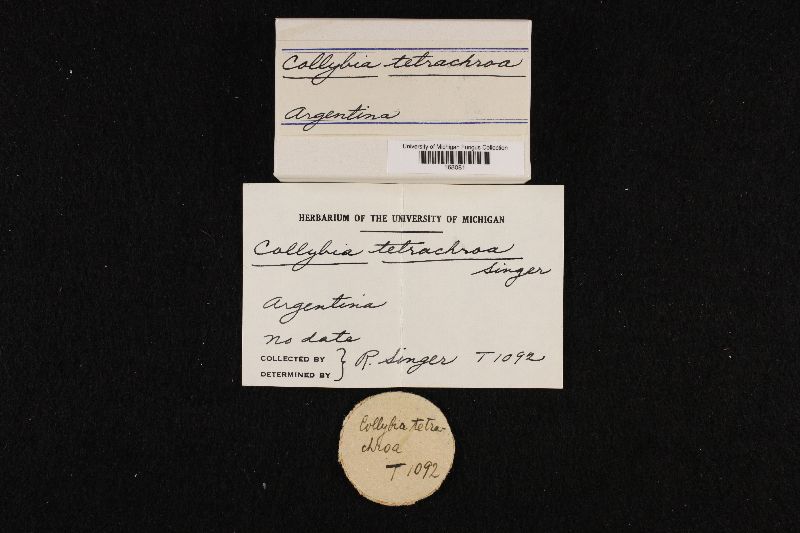 Collybia tetrachroa
Argentina
University of Michigan Fungus Collection
HERBARIUM OF THE UNIVERSITY OF MICHIGAN
Collybia tetrachroa
Singer
Argentina
no date
COLLECTED BY
DETERMINED BY } R. Singer T1092
Collybia tetra-
chroa
T1092